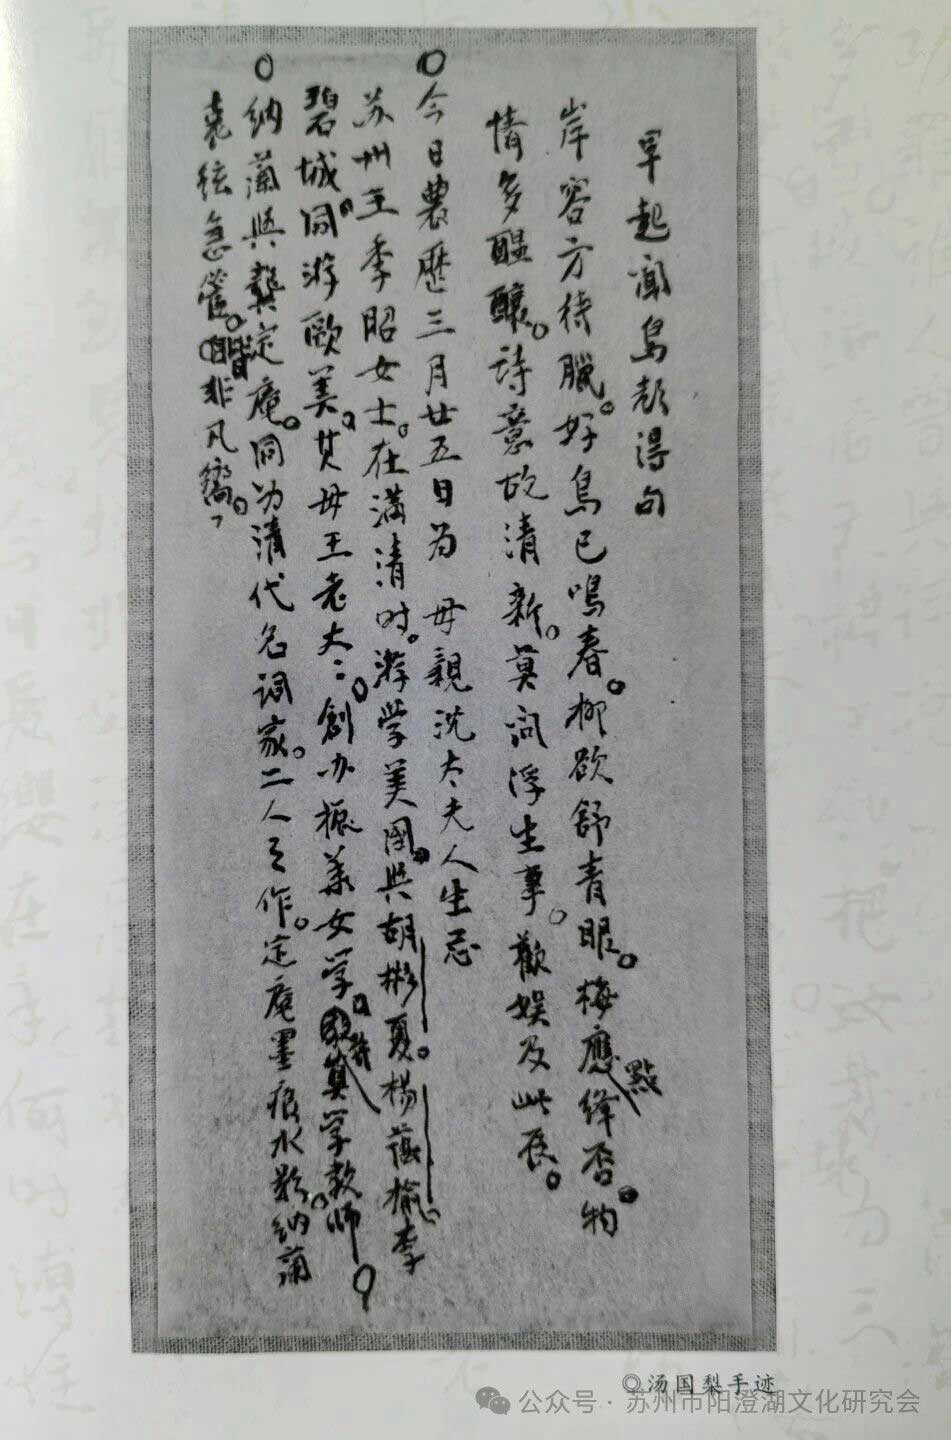 早起闻鸟声得句
岸容方待臘。好鳥已鳴春。柳欲舒青眼。梅應點絳唇。物
情多醖釀。詩意故清新。莫问浮生事。歡娱及此辰。
今日農歷三月廿五日为 母親沈太夫人生忌
苏州王季昭女士。在满清时。游学美國。與胡彬夏。楊蔭榆。李
碧城。同游歐美。其母王老太々。創办振華女学。并算学教师
納蘭與龔定庵。同为清代名词家。二人之作。定庵墨痕水影。纳蘭
哀絃急管。皆非凡響。
◎汤国梨手迹
公众号·苏州市阳澄湖文化研究会